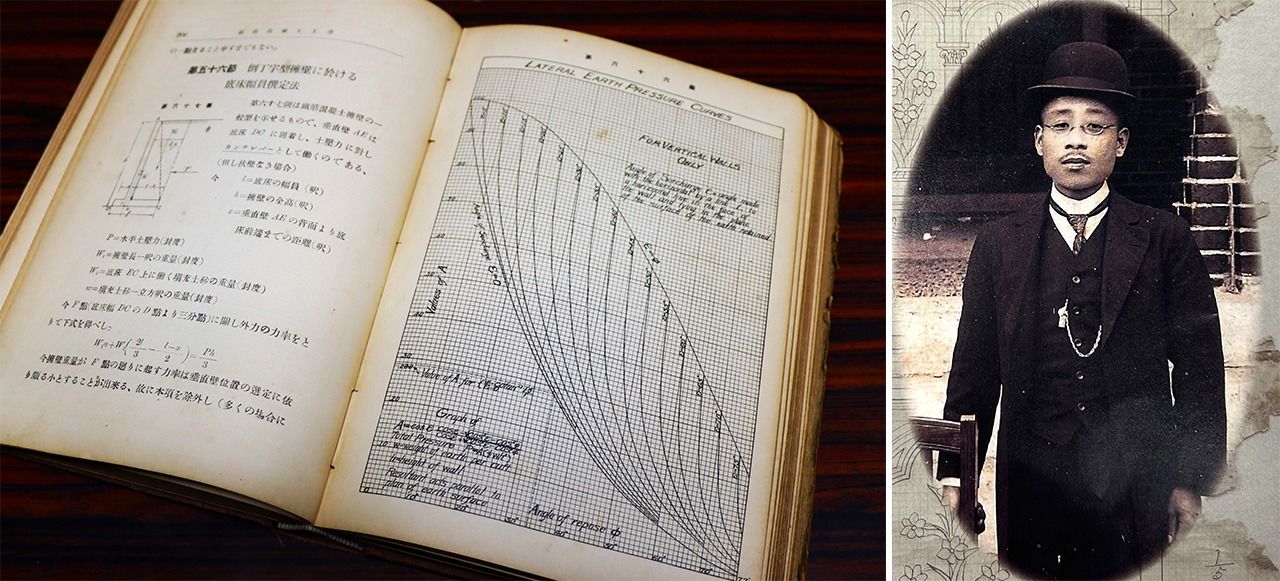 の一點なること申すまでもない。
第五十六節 倒丁字型擁壁に於ける
底床幅員撰定法
第六十七圖
第六十七圖は鐵筋混凝土擁壁の一
般型を示せるもので、垂直壁 AE は
底床 DC に固着し、土壓力に對し
カンチレバーとして働くのである、
(但し扶壁なき場合)
今 l=底床の幅員(呎)
h=擁壁の全高(呎)
x=垂直壁 AE の背面より底
床前端までの距離(呎)
P=水平土壓力(封度)
W₁=擁壁長一呎の重量(封度)
W₂=底床 EC 上に働く填充土砂の重量(封度)
w=填充土砂一立方呎の重量(封度)
今 F 點(底床幅 DC の D 點より三分點)に關し外力の力率をと
りて下式を得べし。
今擁壁重量が F 點の廻りに起す力率は垂直壁位置の選定に依
り頗る小とすることが出來る、故に本項を除外し(多くの場合に
第六十六圖
LATERAL EARTH PRESSURE CURVES
FOR VERTICAL WALLS
ONLY
Values of A
Graph of
h=height of wall
Resultant acts parallel to
plan of earth surface
Angle of repose φ